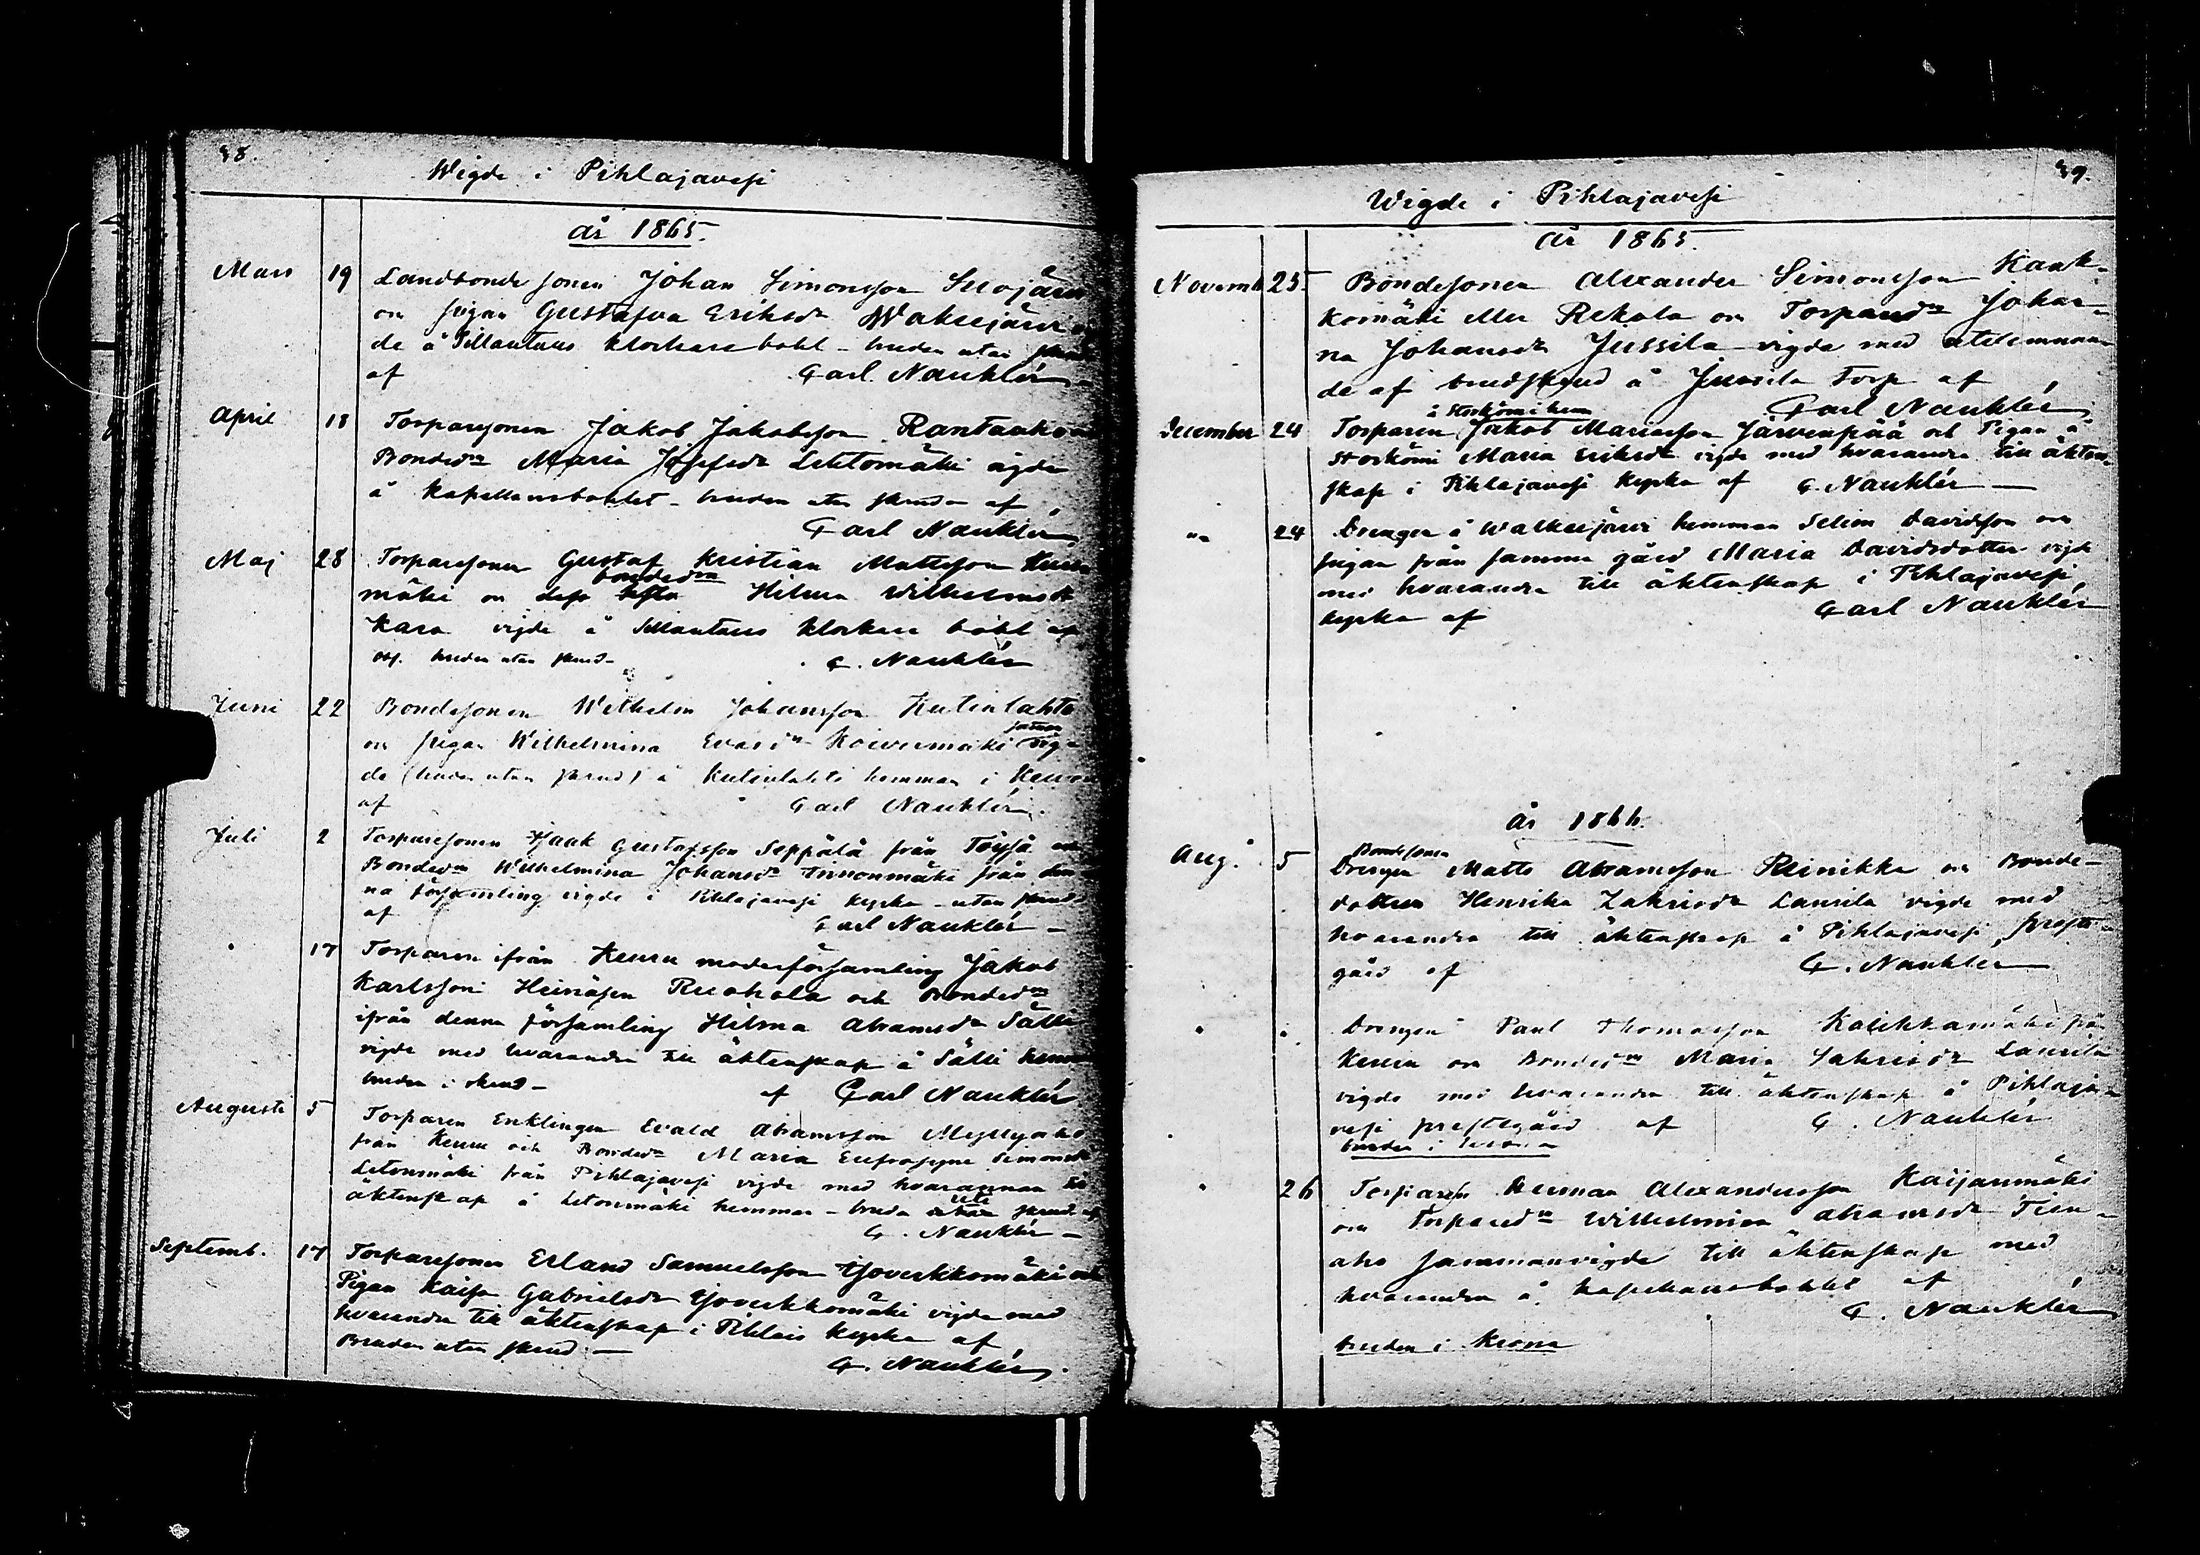 38.
Wigde i Pihlajavesi
år 1865.
Mars 19 Landbondesonen Johan Simonsson Suojärvi
och pigan Gustafva Eriksdr Wakerjärvi
de å Sillantaus klockarebohl – bruden utan skrud
af Carl Nauklér
April 18 Torparesonen Jakob Jakobsson Rantaaho
Bondedn Maria Josefsdr Lehtomäki vigde
å kapellansbohlet – bruden utan skrud – af
Carl Nauklér
Maj 28 Torparesonen Gustaf Kristian Mattsson
mäki och bondedn Hilma Wilhelmsdr
Kara vigde å Sillantaus klockare bohl af
obs. bruden utan skrud – C. Nauklér
Juni 22 Bondesonen Wilhelm Johansson Kutinlahti
och pigan Wilhelmina Evasdr Koivumäki vig-
de (bruden utan skrud) å Kutinlahti hemman i Keuru
af Carl Nauklér.
Juli 2 Torparesonen Isaak Gustafsson Seppälä från Töysä och
Bondedn Wilhelmina Johansdr från den-
na församling vigde i Pihlajavesi kyrka – utan skrud
af Carl Nauklér –
17 Torparen ifrån Keuru moderförsamling Jakob
Karlsson Heinäsen Ruokola och Bondedn
ifrån denna församling Hilma Abramsdr Sälli
vigde med hvarandra till äktenskap å Sälli hemman
bruden i skrud – af Carl Nauklér
Augusti 5 Torparen Enklingen Evald Abramsson Myllyaho
från Keuru och Bondedn Maria Eufrosyne Simonsdr
Letonmäki från Pihlajavesi vigde med hvarannan till
äktenskap å Letonmäki hemman – bruden uti skrud af
C. Nauklér –
Septemb. 17 Torparesonen Erland Samuelsson Isoverkkomäki och
Pigan Kaisa Gabrielsdr Isoverkkomäki vigde med
hvarandra till äktenskap i Pihlais kyrka af
Bruden utan skrud – C. Nauklér.
39.
Wigde i Pihlajavesi
år 1865.
Novemb 25. Bondesonen Alexander Simonsson Kauk-
komäki eller Rekola och Torparedn Johan-
na Johansdr Jussila vigde med utelemnan-
de af brudskrud å Jussila Torp af
Carl Nauklér
å Storkömi hem
December 24 Torparen Jakob Mariasson Järvenpää och Pigan å
Storkömi Maria Eriksdr vigde med hvarandra till äkten-
skap i Pihlajavesi kyrka af C. Nauklér –
"" 24 Drengen å Walkeejärvi hemman Selim Davidsson och
pigan från samma gård Maria Davidsdotter vigde
med hvarandra till äktenskap i Pihlajavesi
kyrka af Carl Nauklér
år 1866.
Bondesonen
Aug. 5 Drengen Matts Abramsson Reinikka och Bonde-
dottren Henrika Zakrisdr Laurila vigde med
hvarandra till äktenskap å Pihlajavesi prest-
gård af C. Nauklér
" " Drengen Paul Thomasson från
Keuru och Bondedn Maria Sakrisdr Laurila
vigde med hvarandra till äktenskap å Pihlaja-
vesi prestgård af C. Nauklér
bruden i krona
" 26 Torparen Herman Alexandersson Kaijanmäki
och Torparedn Wilhelmina Abramsdr Tien-
aho sammanvigde till äktenskap med
hvarandra å kapellansbohlet af
C. Nauklér
bruden i krona